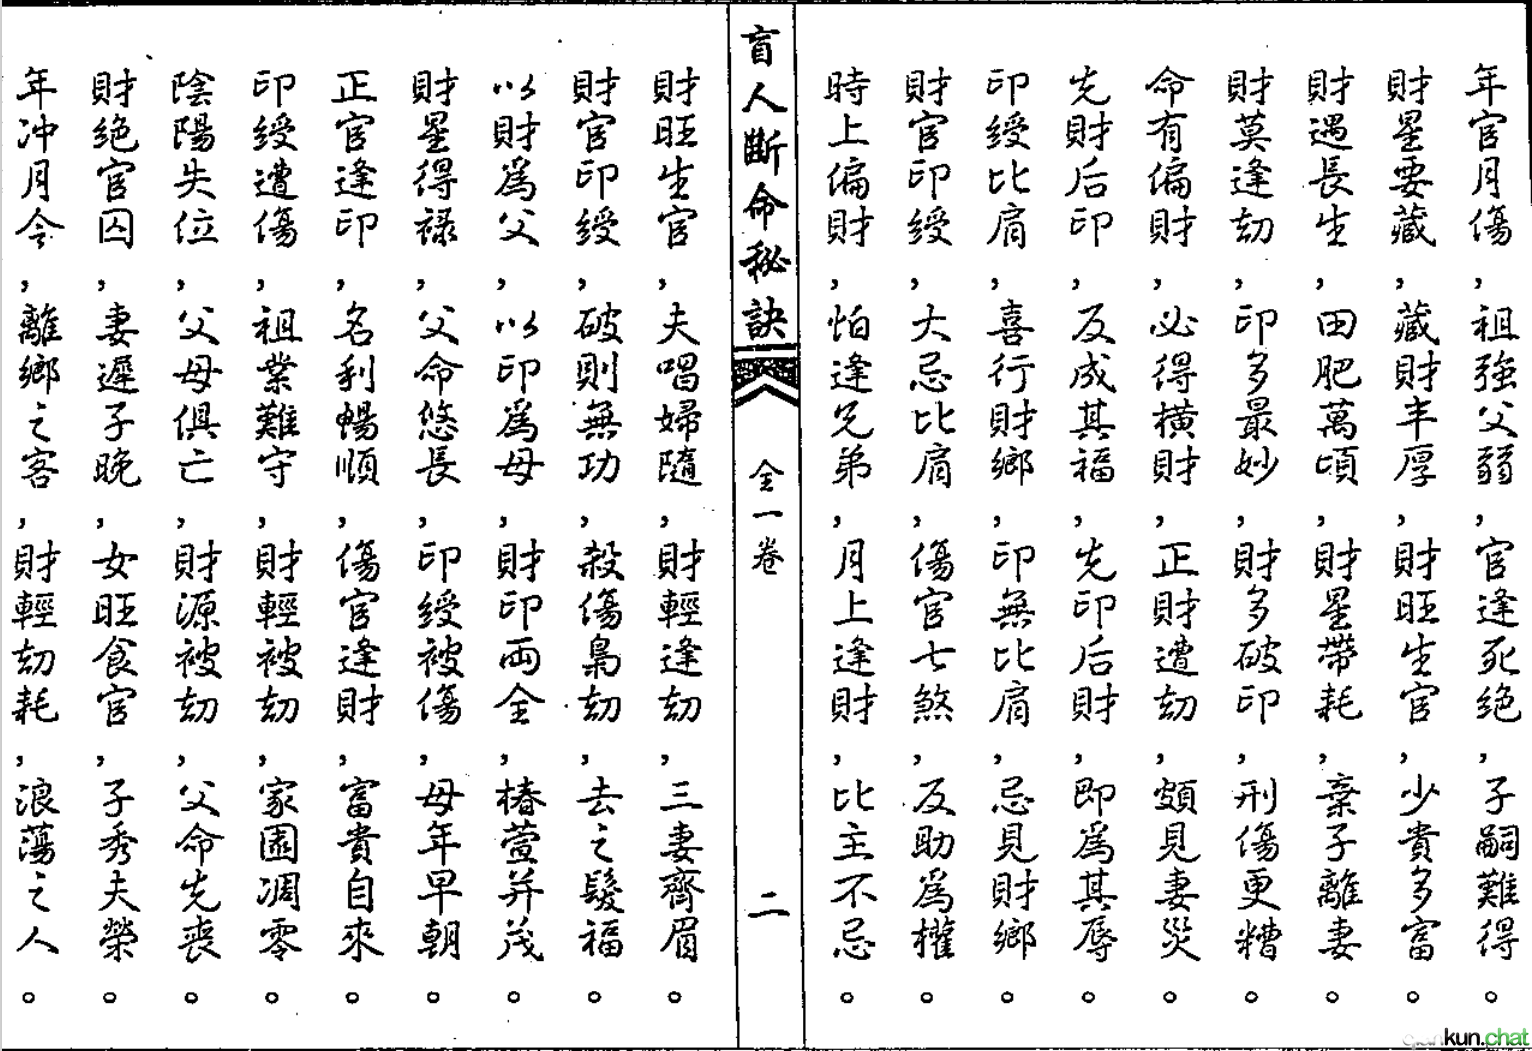 年官月傷，祖強父弱，官逢死绝，子嗣難得。
財星要藏，藏財丰厚，財旺生官，少貴多富。
財遇長生，田肥萬頃，財星帶耗，棄子離妻。
財莫逢劫，印多最妙，財多破印，刑傷更糟。
命有偏財，必得横財，正財遭劫，頗見妻災。
先財后印，反成其福，先印后財，即為其辱。
印綬比肩，喜行財鄉，印無比肩，忌見財鄉。
財官印綬，大忌比肩，傷官七煞，反助為權。
時上偏財，怕逢兄弟，月上逢財，比主不忌。
盲人斷命秘訣 全一卷 二
財旺生官，夫唱婦隨，財輕逢劫，三妻齊眉。
財官印綬，破則無功，殺傷梟劫，去之髮福。
以財為父，以印為母，財印両全，椿萱并茂。
財星得禄，父命悠長，印綬被傷，母年早朝。
正官逢印，名利暢順，傷官逢財，富貴自來。
印綬遭傷，祖業難守，財輕被劫，家園凋零。
陰陽失位，父母俱亡，財源被劫，父命先丧。
財绝官囚，妻遲子晚，女旺食官，子秀夫榮。
年冲月令，離鄉之客，財輕劫耗，浪蕩之人。
qiankun.chat